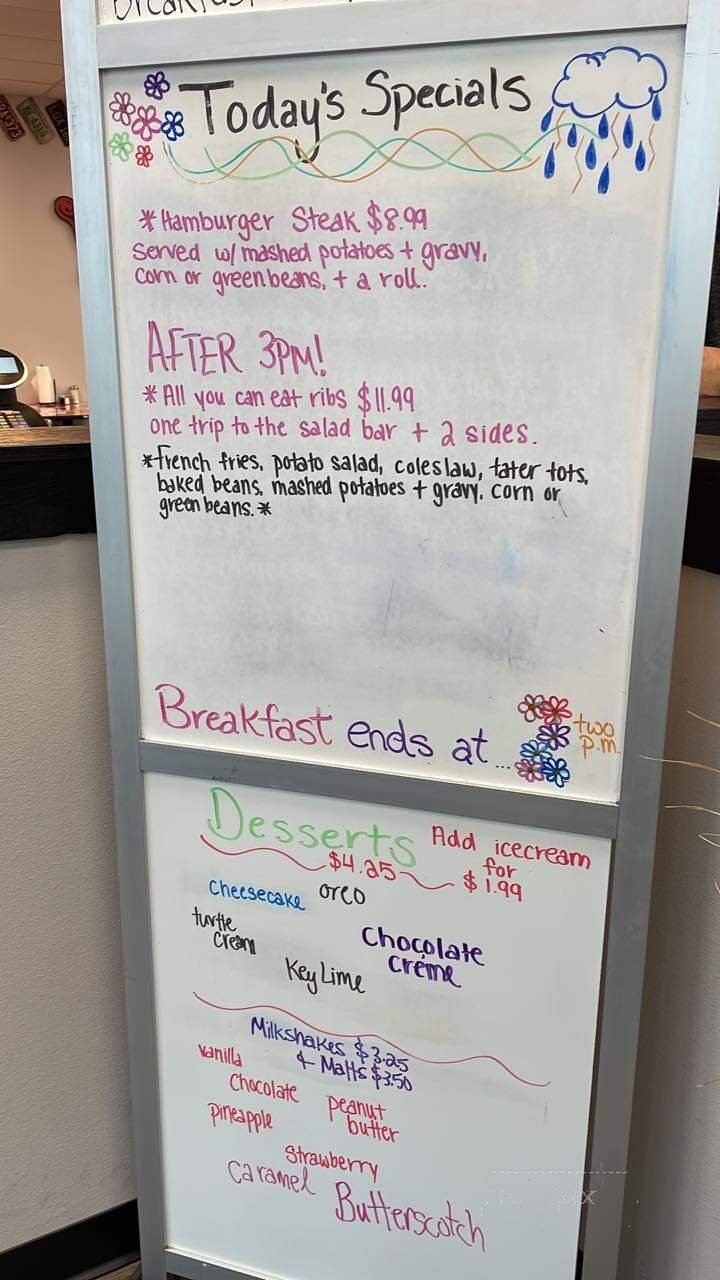 Breakfast
Today's Specials
*Hamburger Steak $8.99
Served w/ mashed potatoes + gravy,
corn or greenbeans, + a roll.
AFTER 3PM!
*All you can eat ribs $11.99
one trip to the salad bar + 2 sides.
*french fries, potato salad, coleslaw, tater tots,
baked beans, mashed potatoes + gravy, corn or
green beans.*
Breakfast ends at...
two
p.m.
Desserts
$4.25
Add icecream
for
$1.99
Cheesecake
oreo
turtle
cream
Chocolate
créme
Key Lime
Milkshakes $3.25
& Malts $3.50
vanilla
Chocolate
peanut
butter
pineapple
Strawberry
Caramel
Butterscotch